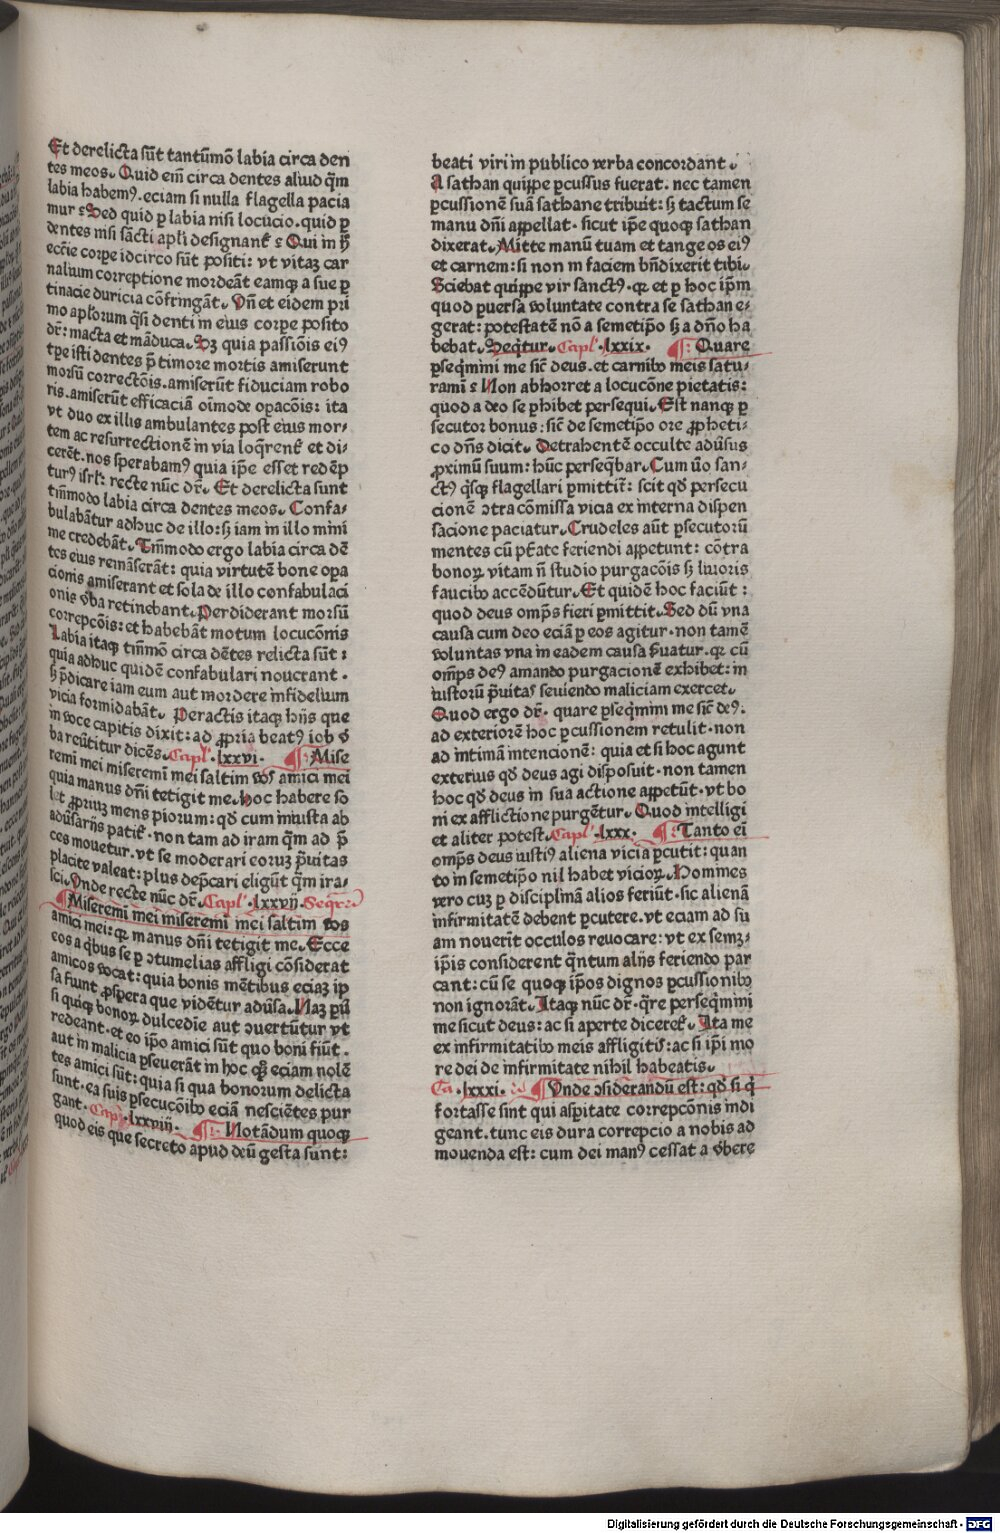 Et derelicta sūt tantūmō labia circa den
tes meos. Quid em̄ circa dentes aliud q̄m
labia habemꝰ. eciam si nulla flagella pacia
mur ꝛ Sed quid ꝑ labia nisi locucio. quid ꝑ
dentes nisi sācti apl̄i designant᷑ ꝛ Qui in ꝑ
ecc̄ie corpe idcirco sūt positi: vt vitaꝫ car
naliun correptione mordeāt eamqꝫ a sue ꝑ
tinacie duricia cōfringāt. Vn̄ et eidem pri
mo apl̄orum q̄si denti in eius corpe posito
dr̄: macta et māduca. Sꝫ quia passiōis eiꝰ
tpe isti dentes p̄ timore mortis amiserunt
morsū correctōis. amiserūt fiduciam robo
ris. amiserūt efficaciā oīmode opacōis: ita
vt duo ex illis ambulantes post eius mor⸗
tem ac resurrectionē in via loq̄rent᷑ et di⸗
cerēt. nos sperabamꝰ quia ip̄e esset redēp
turꝰ isrl̄: recte nūc dr̄. Et derelicta sunt
tm̄modo labia circa dentes meos. Confa⸗
bulabātur adhuc de illo: sꝫ iam in illo mini
me credebāt. Tm̄modo ergo labia circa dē
tes eius remāserāt: quia virtutē bone opa
cionis amiserant et sola de illo confabulaci
onis v̄ba retinebant. Perdiderant morsū
correpcōis: et habebāt motum locucōnis
Labia itaqꝫ tm̄mō circa dētes relicta sūt:
quia adhuc quidē confabulari noucrant.
sꝫ p̄dicare iam eum aut mordere infidelium
vicia formidabāt. Peractis itaqꝫ hijs que
in voce capitis dixit: ad ꝓpria beatꝰ iob v̄
ba reūtitur dicēs. Capl᷑. lxxvi. ¶ Mise
remi mei miseremī mei saltim vos amici mei
quia manus dn̄i tetigit me. hoc habere so
let ꝓpriuꝫ mens piorum: qd̄ cum iniusta ab
adūsarijs patit᷑. non tam ad iram q̄m ad p̄
ces mouetur. vt se moderari eoruꝫ p̄uitas
placite valeat: plus dep̄cari eligūt q̄m ira⸗
sci. Vnde recte nūc dr̄. Capl᷑. lxxvij. Seqr᷑
¶ Miseremī mei miseremī mei saltim vos
amici mei: qꝛ manus dn̄i tetigit me. Ecce
eos a qͥbus se ꝑ ꝯtumelias affligi cōsiderat
amicos vocat: quia bonis mētibus eciaꝫ ip
sa fiunt ꝓspera que vidētur adūsa. Naꝫ p̄ui
si quiqꝫ bonoꝝ dulcedīe aut ꝯuertūtur vt
redeant. et eo ip̄o amici sūt quo boni fiūt.
aut in malicia ꝑseuerāt in hoc qꝫ eciam nolē
tes amici sūt: quia si qua bonorum delicta
sunt. ea suis ꝑsecucōibꝫ eciā nesciētes pur
gant. Capl᷑. lxxviij. ¶ Notādum quoqꝫ
quod eis que secreto apud deū gesta sunt:
beati viri in publico verba concordant.
A sathan quippe ꝑcussus fuerat. nec tamen
ꝑcussionē suā sathane tribuit: sꝫ tactum se
manu dn̄i appellat. sicut ip̄e quoqꝫ sathan
dixerat. Mitte manū tuam et tange os eiꝰ
et carnem: si non in faciem bn̄dixerit tibi.
Sciebat quippe vir sanctꝰ. qꝛ et ꝑ hoc ip̄m
quod ꝑuersa voluntate contra se sathan e⸗
gerat: potestatē nō a semetip̄o sꝫ a dn̄o ha
bebat. Seq̄tur. Capl᷑. lxxix. ¶ Quare
ꝑseq̄mini me sic̄ deus. et carnibꝫ meis satu⸗
ramī ꝛ Non abhorret a locucōne pietatis:
quod a deo se ꝑhibet persequi. Est nanqꝫ ꝑ
secutor bonus: sic̄ de semetip̄o ore ꝓpheti⸗
co dn̄s dicit. Detrahentē occulte adūsus
ꝓximū suum: hūc perseq̄bar. Cum v̄o san⸗
ctꝰ qͥsqꝫ flagellari ꝑmittit᷑: scit qd̄ persecu
cionē ꝯtra cōmissa vicia ex interna dispen
sacione paciatur. Crudeles aūt ꝑsecutorū
mentes cū pt̄ate feriendi appetunt: cōtra
bonoꝝ vitam n̄ studio purgacōis sꝫ liuoris
faucibꝫ accēdūtur. Et quidē hoc faciūt:
quod deus omp̄s fieri ꝑmittit. Sed dū vna
causa cum deo eciā ꝑ eos agitur. non tamē
voluntas vna in eadem causa s̄uatur. qꝛ cū
omp̄s deꝰ amando purgacionē exhibet: in
iustorū p̄uitas seuiendo maliciam exercet.
Quod ergo dr̄. quare ꝑseq̄mini me sic̄ deꝰ.
ad exteriorē hoc ꝑcussionem retulit. non
ad intimā intencionē: quia et si hoc agunt
exterius qd̄ deus agi disposuit. non tamen
hoc qd̄ deus in sua actione appetūt. vt bo
ni ex afflictione purgētur. Quod intelligi
et aliter potest. Capl᷑. lxxx. ¶ Tanto ei
omp̄s deus iustiꝰ aliena vicia ꝑcutit: quan
to in semetip̄o nil habet vicioꝝ. Homines
vero cuꝫ ꝑ disciplinā alios feriūt. sic alienā
infirmitatē debent ꝑcutere. vt eciam ad su
am nouerīt occulos reuocare: vt ex semꝫ⸗
ip̄is considerent q̄ntum alijs feriendo par
cant: cū se quoqꝫ ip̄os dignos ꝑcussionibꝫ
non ignorāt. Itaqꝫ nūc dr̄. q̄re perseq̄mini
me sicut deus: ac si aperte diceret᷑. Ita me
ex infirmitatibꝫ meis affligitis: ac si ip̄i mo
re dei de infirmitate nihil habeatis.
Ca. lxxxi. ¶ Vnde ꝯsiderandū est: qd̄ si q̄
fortasse sint qui aspitate correpcōnis indi
geant. tunc eis dura correpcio a nobis ad
mouenda est: cum dei manꝰ cessat a v̄bere
Digitalisierung gefördert durch die Deutsche Forschungsgemeinschaft - DFG